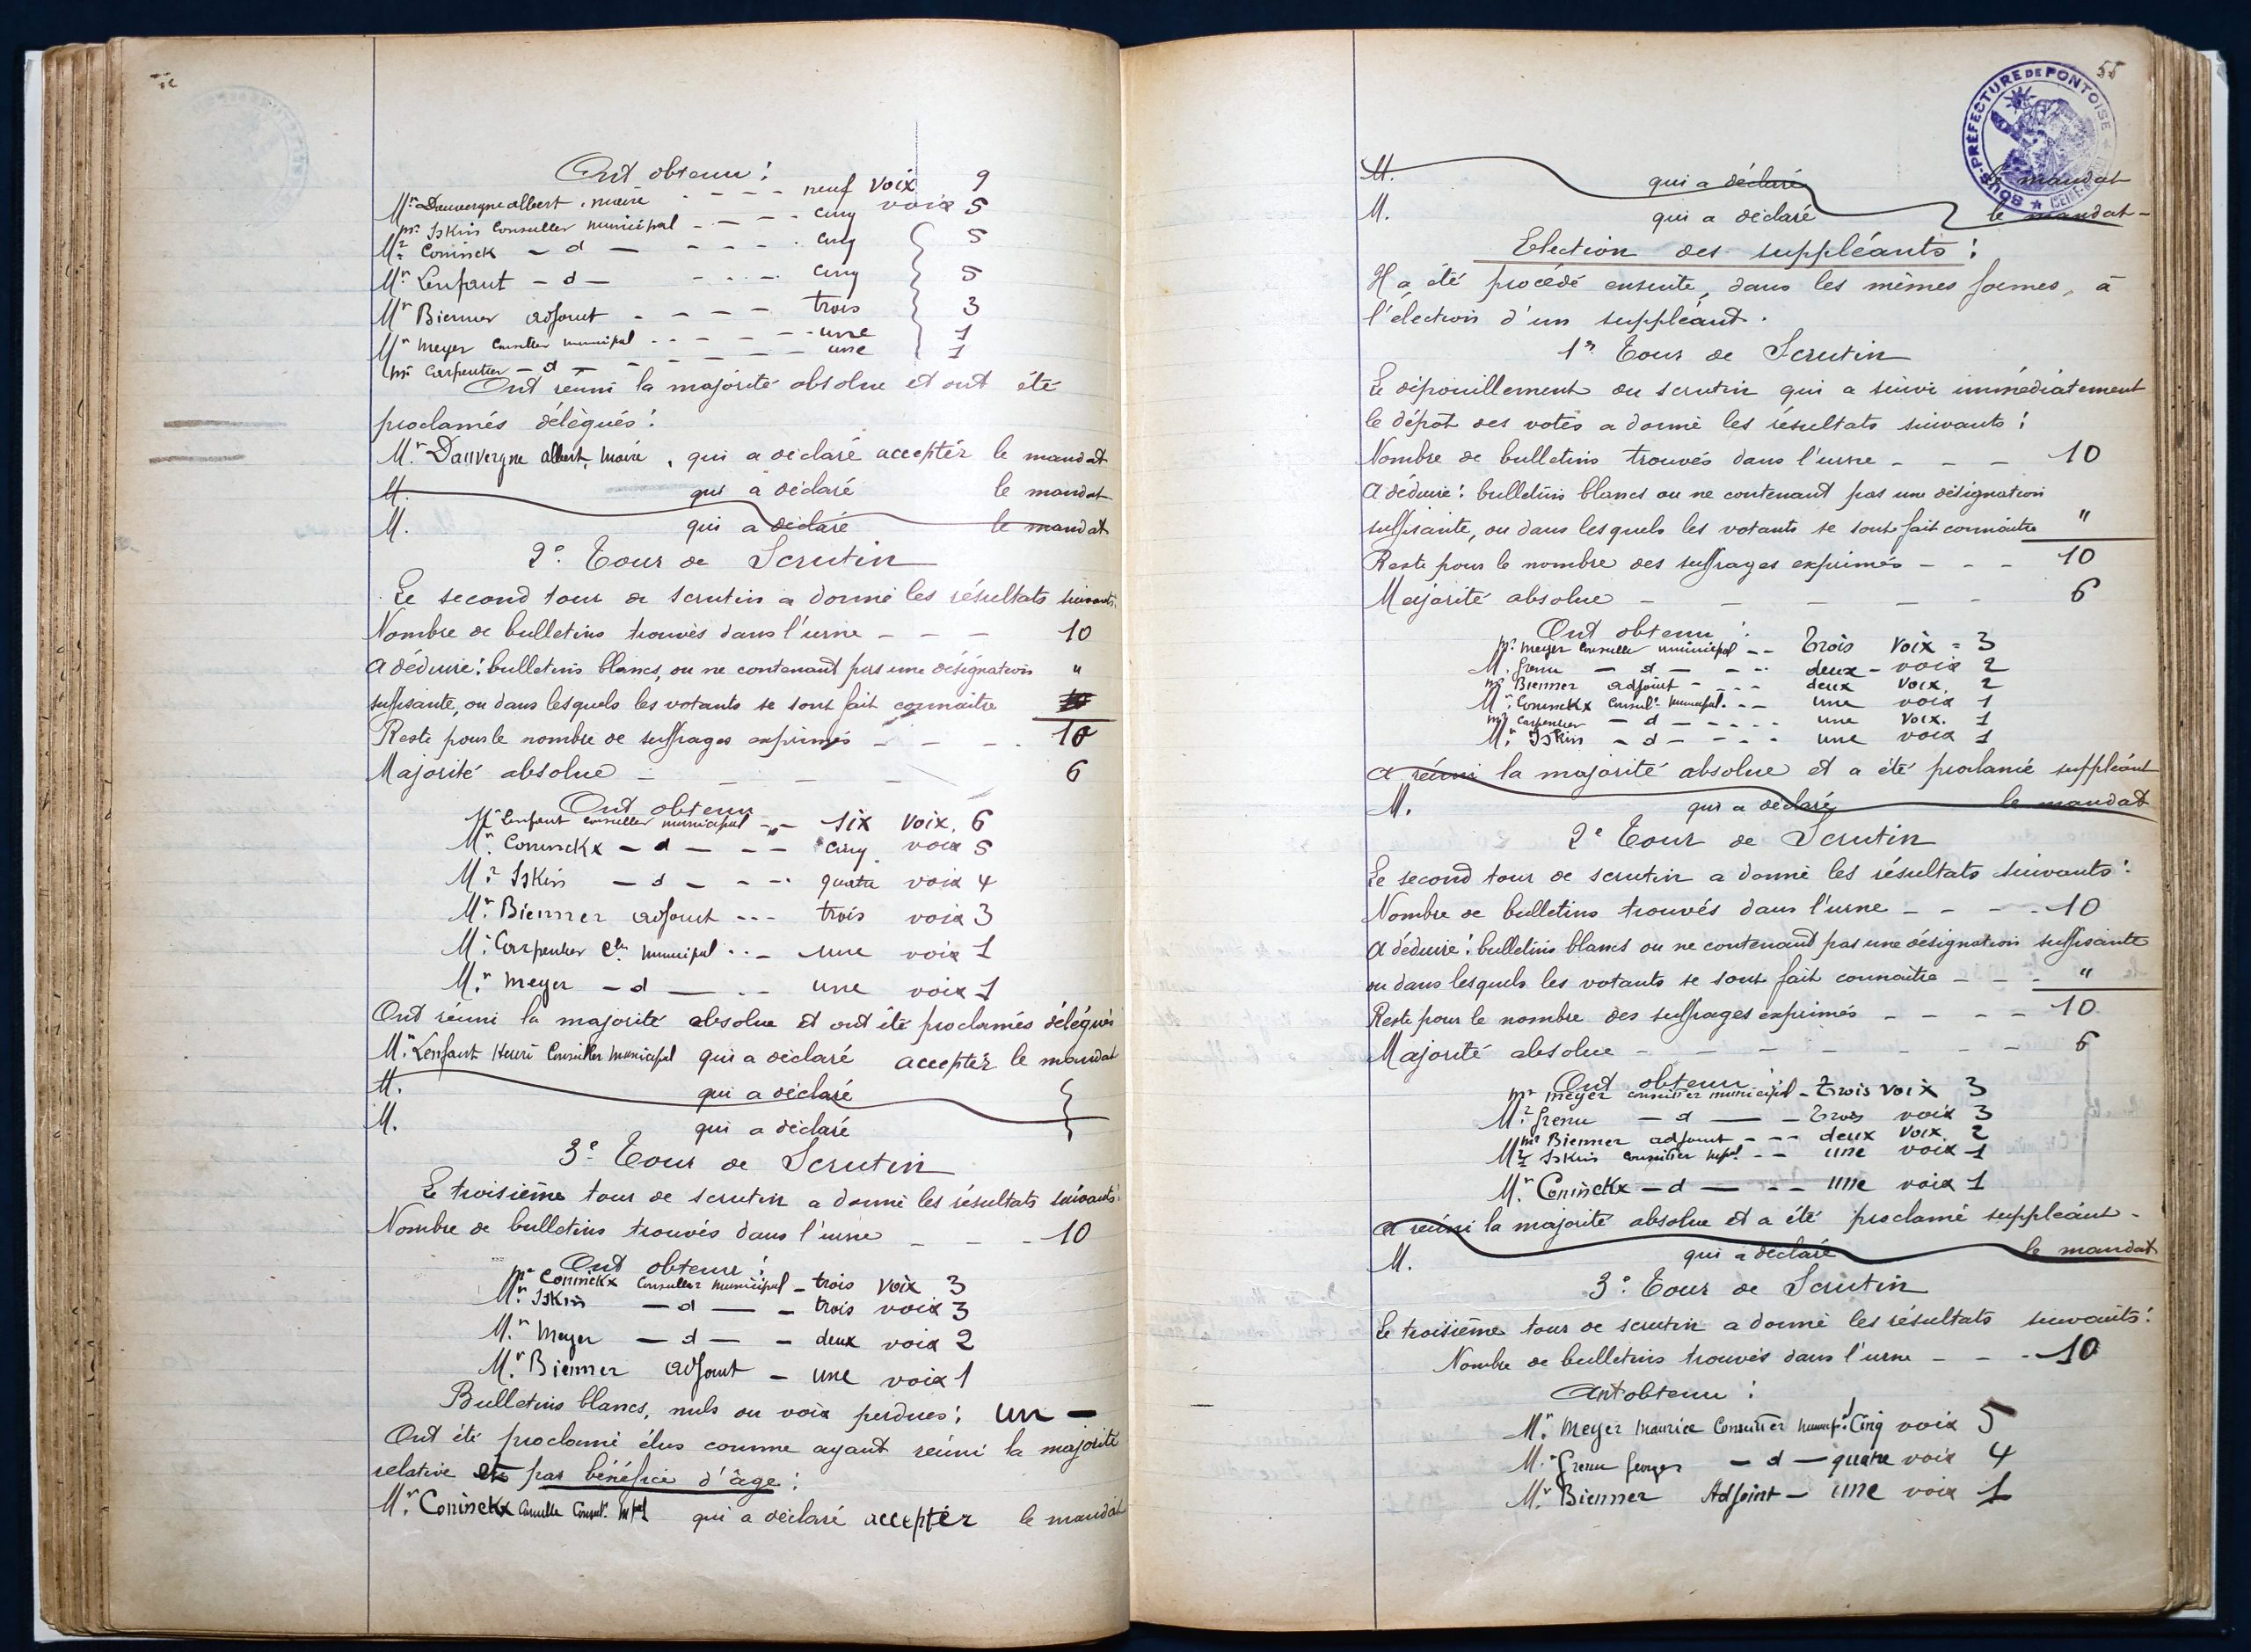 Ont obtenu :
Mr Dauvergne albert, maire - - - neuf voix 9
Mr Iskin Conseiller municipal - - - cinq voix 5
Mr Coninck - d - - - - cinq 5
Mr Lenfant - d - - - - cinq 5
Mr Bienner adjoint - - - - trois 3
Mr Meyer Conseiller municipal - - - - une 1
Mr Carpentier - d - - - - - une 1
Ont réuni la majorité absolue et ont été
proclamés délégués :
Mr Dauvergne albert, maire, qui a déclaré accepter le mandat
M. qui a déclaré le mandat
M. qui a déclaré le mandat
2e Tour de Scrutin
Le second tour de scrutin a donné les résultats suivants :
Nombre de bulletins trouvés dans l'urne - - - 10
A déduire : bulletins blancs, ou ne contenant pas une désignation "
suffisante, ou dans lesquels les votants se sont fait connaitre
Reste pour le nombre de suffrages exprimés - - - 10
Majorité absolue - - - - 6
Ont obtenu
Mr Lenfant conseiller municipal - - six voix. 6
Mr Coninckx - d - - - cinq voix 5
Mr Iskin - d - - - quatre voix 4
Mr Bienner adjoint - - - trois voix 3
Mr Carpentier Cer municipal - - - une voix 1
Mr Meyer - d - - - une voix 1
Ont réuni la majorité absolue et ont été proclamés délégués
Mr Lenfant Henri Conseiller municipal qui a déclaré accepter le mandat
M. qui a déclaré
M. qui a déclaré
3e Tour de Scrutin
Le troisième tour de scrutin a donné les résultats suivants :
Nombre de bulletins trouvés dans l'urne - - - 10
Ont obtenu :
Mr Coninckx Conseiller municipal - trois voix 3
Mr Iskin - d - - trois voix 3
Mr Meyer - d - - deux voix 2
Mr Bienner adjoint - une voix 1
Bulletins blancs, nuls ou voix perdues : un -
Ont été proclamé élus comme ayant réuni la majorité
relative et par bénéfice d'âge :
Mr Coninckx Camille Conser mpal qui a déclaré accepter le mandat
55
SOUS-PRÉFECTURE DE PONTOISE
M. qui a déclaré le mandat
M. qui a déclaré le mandat -
Election des suppléants :
Il a été procédé ensuite, dans les mêmes formes, à
l'élection d'un suppléant.
1er Tour de Scrutin
Le dépouillement du scrutin qui a suivi immédiatement
le dépôt des votes a donné les résultats suivants :
Nombre de bulletins trouvés dans l'urne - - - 10
A déduire : bulletins blancs ou ne contenant pas une désignation
suffisante, ou dans lesquels les votants se sont fait connaitre "
Reste pour le nombre des suffrages exprimés - - - 10
Majorité absolue - - - - - 6
Ont obtenu :
Mr Meyer Conseiller municipal - - Trois voix = 3
M. Grenu - d - - - deux - voix 2
Mr Bienner adjoint - - - - deux voix. 2
Mr Coninckx Conseilr municipal. - - une voix 1
Mr Carpentier - d - - - - une voix. 1
Mr Iskin - d - - - - une voix 1
a réuni la majorité absolue et a été proclamé suppléant
M. qui a déclaré le mandat
2e Tour de Scrutin
Le second tour de scrutin a donné les résultats suivants :
Nombre de bulletins trouvés dans l'urne - - - - 10
A déduire : bulletins blancs ou ne contenant pas une désignation suffisante
ou dans lesquels les votants se sont fait connaitre - - - "
Reste pour le nombre des suffrages exprimés - - - - 10
Majorité absolue - - - - - - - 6
Ont obtenu :
Mr Meyer conseiller municipal - Trois voix 3
Mr Grenu - d - - Trois voix 3
Mr Bienner adjoint - - - deux voix. 2
Mr Iskin conseiller mpal - - une voix 1
Mr Coninckx - d - - - une voix 1
a réuni la majorité absolue et a été proclamé suppléant -
M. qui a déclaré le mandat
3e Tour de Scrutin
Le troisième tour de scrutin a donné les résultats suivants :
Nombre de bulletins trouvés dans l'urne - - - 10
Ont obtenu :
Mr Meyer Maurice Conseiller municipal Cinq voix 5
Mr Grenu Georges - d - quatre voix 4
Mr Bienner Adjoint - une voix 1